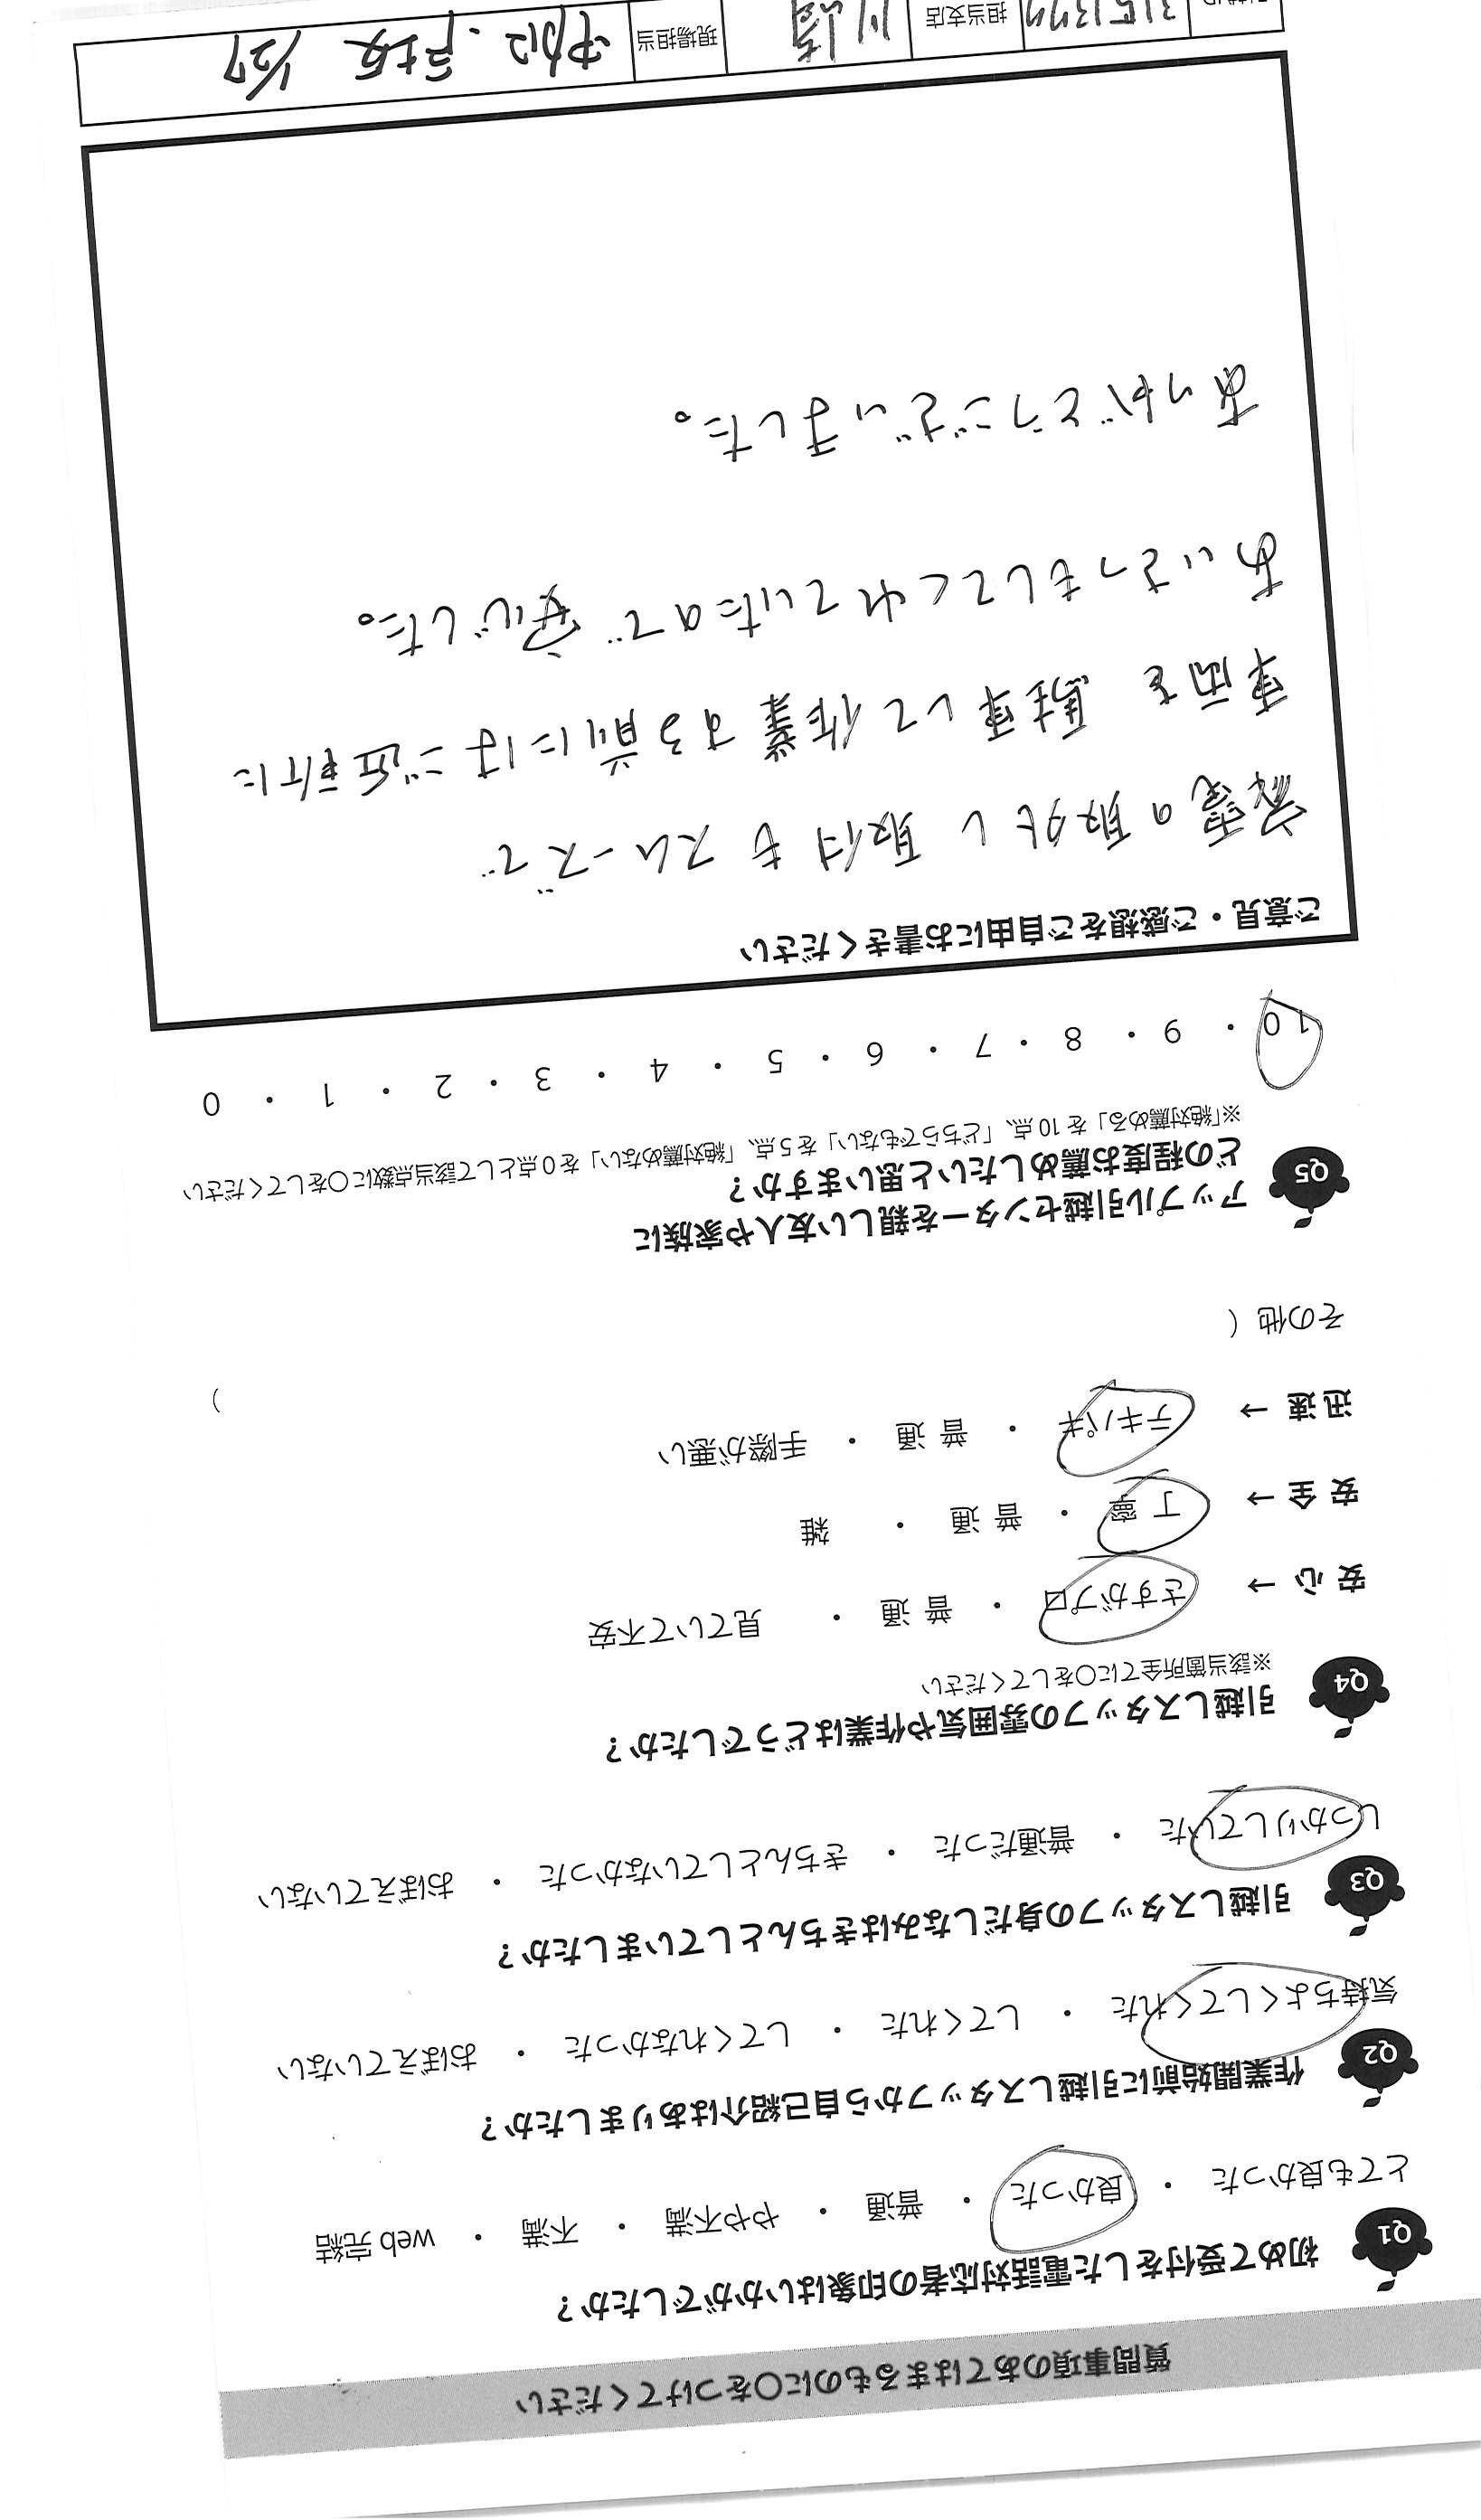 質問事項のあてはまるものに〇をつけてください
Q1 初めて受付をした電話対応者の印象はいかがでしたか？
とても良かった ・ 良かった ・ 普通 ・ やや不満 ・ 不満 ・ web完結
Q2 作業開始前に引越しスタッフから自己紹介はありましたか？
気持ちよくしてくれた ・ してくれた ・ してくれなかった ・ おぼえていない
Q3 引越しスタッフの身だしなみはきちんとしていましたか？
しっかりしていた ・ 普通だった ・ きちんとしていなかった ・ おぼえていない
Q4 引越しスタッフの雰囲気や作業はどうでしたか？
※該当箇所全てに〇をしてください
安心 → さすがプロ ・ 普通 ・ 見ていて不安
安全 → 丁寧 ・ 普通 ・ 雑
迅速 → テキパキ ・ 普通 ・ 手際が悪い
その他（ ）
Q5 アップル引越センターを親しい友人や家族に
どの程度お薦めしたいと思いますか？
※「絶対薦める」を10点、「どちらでもない」を5点、「絶対薦めない」を0点として該当点数に〇をしてください
10 ・ 9 ・ 8 ・ 7 ・ 6 ・ 5 ・ 4 ・ 3 ・ 2 ・ 1 ・ 0
ご意見・ご感想をご自由にお書きください
家電の取外し取付もスムーズで
車両を駐車して作業する前にはご近所に
あいさつもしてくれていたので安心した。
ありがとうございました。
3151377 担当支店 川崎 現場担当 1/27